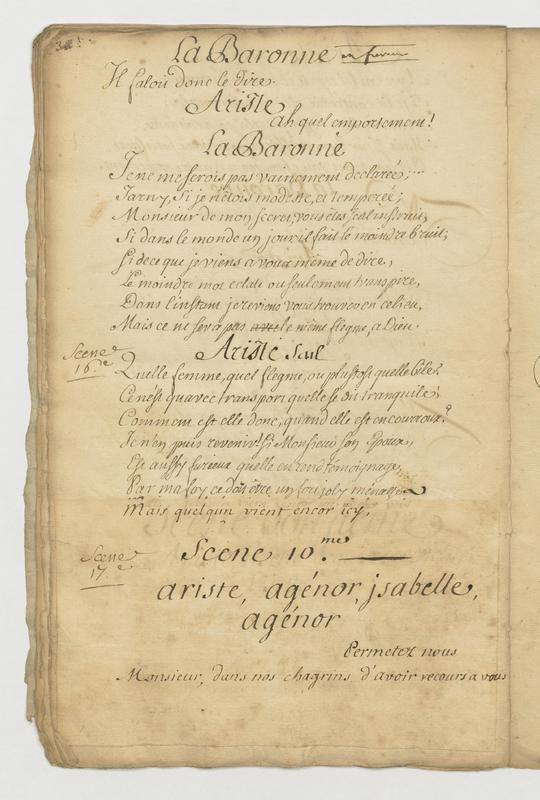 La Baronne en fureur
Il faloit donc le dire.
Ariste
Ah quel emportement!
La Baronne
Je ne me serois pas vainement declarée;
Tarny, si je n'étois modeste, et temperée;
Monsieur de mon secret, vous êtes seul instruit,
Si dans le monde un jour il fait le moindre bruit;
Si de ce que je viens a vous même de dire,
Le moindre mot eclate ou seulement transpire,
Dans l'instant je reviens vous trouver en ce lieu,
Mais ce ne sera pas avec le même flegme, a Dieu.
Ariste seul
Scene 16.e
Quelle femme, quel flegme, ou plustost quelle bile!
Ce n'est qu'avec transport qu'elle se dit tranquile!
Comment est elle donc, quand elle est en courroux?
Je n'en puis revenir! si Monsieur son Epoux,
Est aussy furieux qu'elle en rend témoignage,
Par ma foy, ce doit être un fort joly ménage
Mais quelqu'un vient encor icy,
Scene 10.me
Scene 17.e
ariste, agénor, jsabelle,
agénor
Permetez nous
Monsieur, dans nos chagrins, d'avoir recours a vous